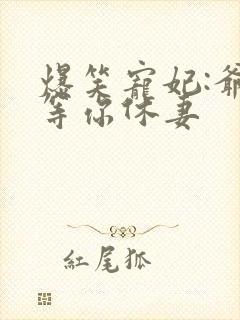 爆笑寵妃:爺
等你休妻
紅尾狐